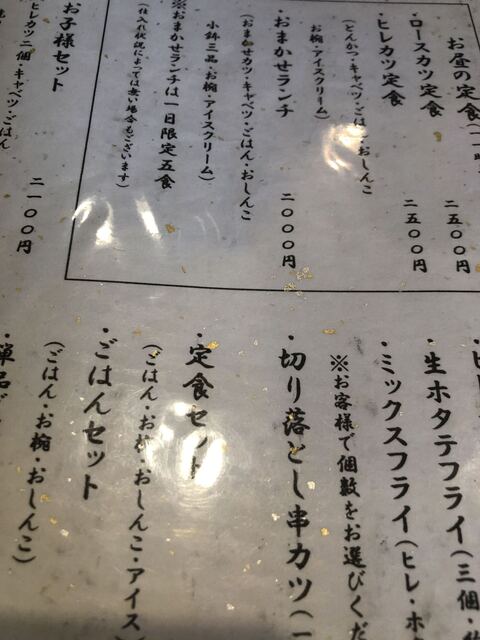 お昼の定食(
・ロースカツ定食 二五〇〇円
・ヒレカツ定食 二五〇〇円
(とんかつ・キャベツ・ごはん・おしんこ
お椀・アイスクリーム)
・おまかせランチ 二〇〇〇円
(おまかせカツ・キャベツ・ごはん・おしんこ
小鉢三品・お椀・アイスクリーム)
※おまかせランチは一日限定五食
(仕入れ状況によっては無い場合もございます)
お子様セット 二一〇〇円
ヒレカツ二個・キャベツ・ごはん
・生ホタテフライ(三個・
・ミックスフライ(ヒレ・ホ
※お客様で個数をお選びくだ
・切り落とし串カツ(一
・定食セット
(ごはん・お椀・おしんこ・アイス
・ごはんセット
(ごはん・お椀・おしんこ)
・単品